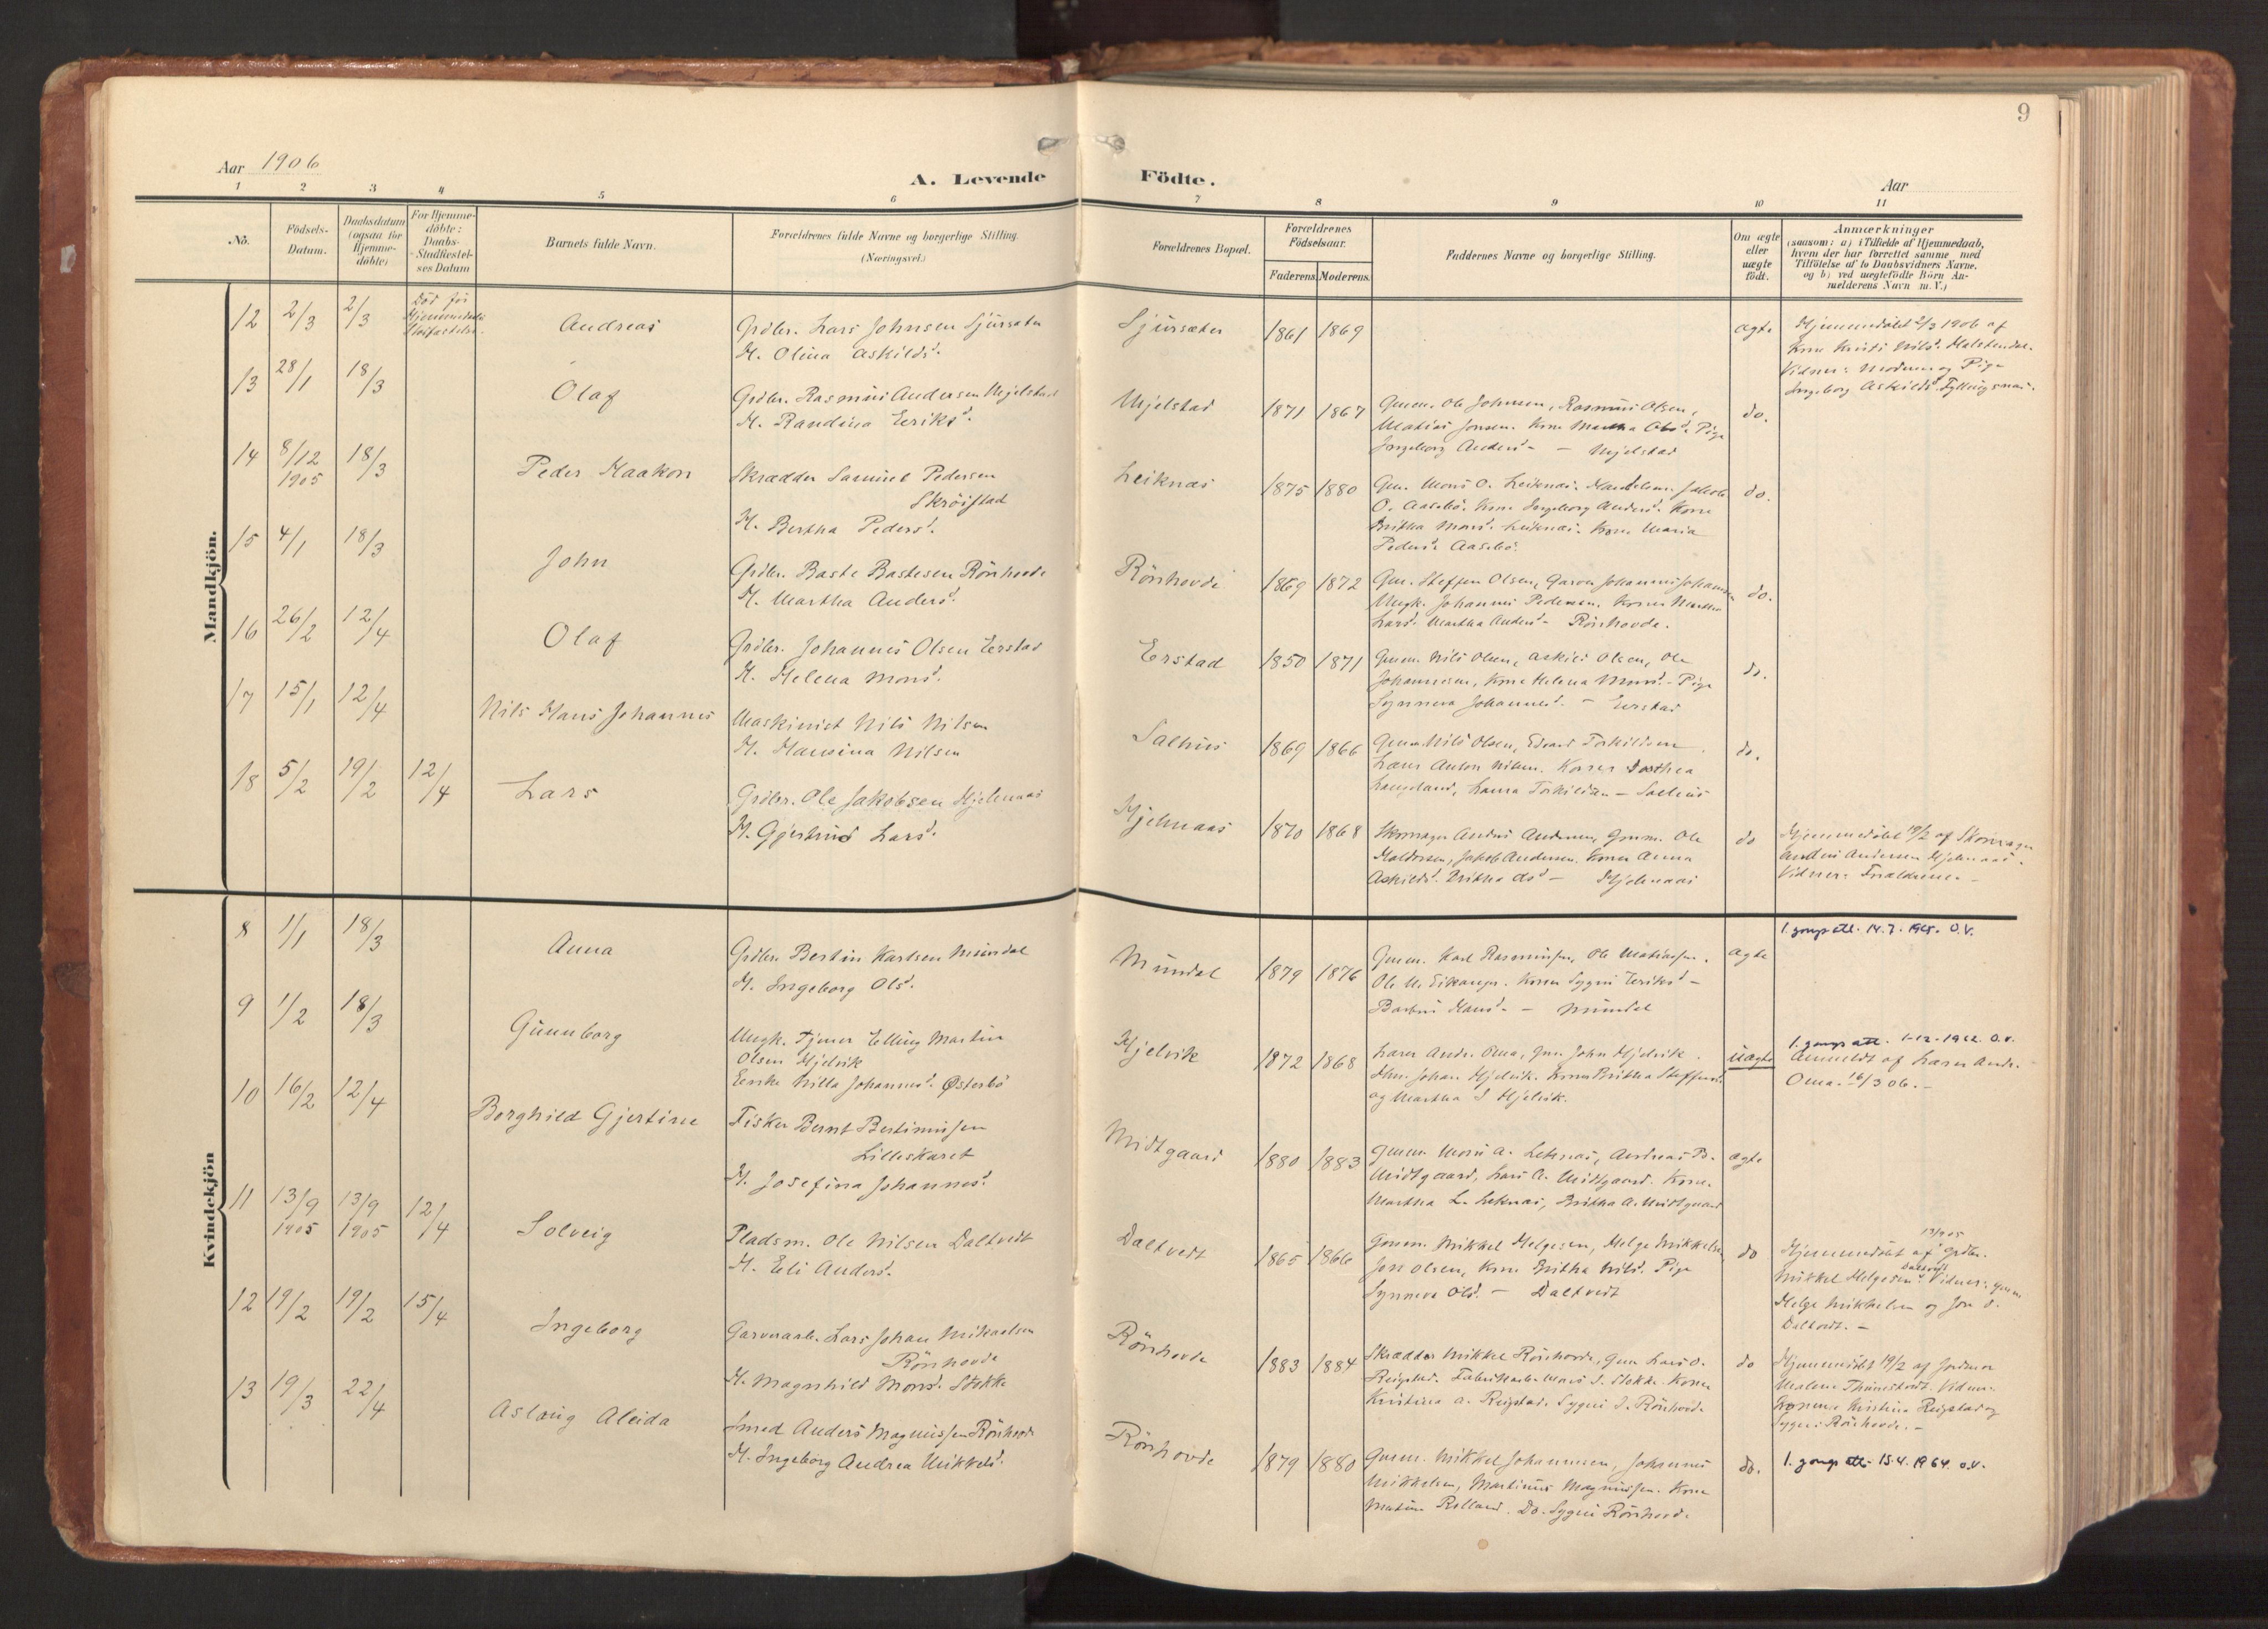 9
Aar 1906
A. Levende Födte.
Aar
1 2 3 4 5 6 7 8 9 10 11
Nö.
Födsels-
Datum.
Daabsdatum
(ogsaa for
Hjemme-
döbte)
For Hjemme-
döbte:
Daabs-
Stadfæstel-
ses Datum
Barnets fulde Navn.
Forældrenes fulde Navne og borgerlige Stilling.
(Næringsvei.)
Forældrenes Bopæl.
Forældrenes
Födselsaar.
Faderens. Moderens.
Faddernes Navne og borgerlige Stilling.
Om ægte
eller
uægte
födt.
Anmærkninger
(saasom: a) i Tilfælde af Hjemmedaab,
hvem der har forrettet samme med
Tilföielse af to Daabsvidners Navne,
og b) ved uægtefödte Börn An-
melderens Navn m.V.)
Mandkjön.
12 2/3 2/3
Död før
Hjemmedaabs
Stadfæstelse.
Andreas
Grdbr. Lars Johnsen Sjursæter
H. Olina Askildsd.
Sjursæter
1861 1869
ægte
Hjemmedöbt 2/3 1906 af
Kone Kristi Nilsd. Halstendal.
Vidner: Moderen og Pige
Ingeborg Askildsd. Fyllingsnæs.
13 28/1 18/3
Olaf
Grdbr. Rasmus Andersen Mjelstad
H. Randina Eriksd.
Mjelstad
1871 1867
Gmm. Ole Johnsen, Rasmus Olsen,
Matias Jonsen. Kone Martha Olsd. Pige
Ingeborg Andersd. - Mjelstad
do.
14 8/12 1905 18/3
Peder Haakon
Skrædder Samuel Pedersen
Skröistad
H. Bertha Pedersd.
Leiknæs
1875 1880
Gm. Mons O. Leiknæs. Handelsm. Jakob
O. Aasebö. Kone Ingeborg Andersd. Kone
Britha Monsd. Leiknæs. Kone Maria
Pedersd. Aasebö.
do.
15 4/1 18/3
John
Grdbr. Baste Bastesen Rönhovde
H. Martha Andersd.
Rönhovde
1869 1872
Gm. Steffen Olsen, Garver Johannes Johannsen
Ungk. Johannes Pedersen. Koner Martha
Larsd. Martha Andersd. Rönhovde.
do.
16 26/2 12/4
Olaf
Grdbr. Johannes Olsen Eerstad
H. Helena Monsd.
Erstad
1850 1871
Gmm. Nils Olsen, Askild Olsen, Ole
Johannesen, Kone Helena Monsd. - Pige
Synneva Johannesd. - Eerstad
do.
17 15/1 12/4
Nils Hans Johannes
Maskinist Nils Nilsen
H. Hansina Nilsen
Salhus
1869 1866
Gmm Nils Olsen, Edvard Torkildsen
Lærer Anton Nilsen. Koner Dorthea
Langeland, Laura Torkildsen - Salhus
do.
18 5/2 19/2 12/4
Lars
Grdbr. Ole Jakobsen Hjelmaas
H. Gjertrud Larsd.
Hjelmaas
1870 1868
Skomager Anders Andersen, Gmm. Ole
Haldorsen, Jakob Andersen. Koner Anna
Askildsd. Britha do - Hjelmaas
do
Hjemmedöbt 19/2 af Skomager
Anders Andersen Hjelmaas.
Vidner: Forældrene. -
Kvindekjön
8 1/1 18/3
Anna
Grdbr. Bertin Karlsen Mundal
H. Ingeborg Olsd.
Mundal
1879 1876
Gmm. Karl Rasmussen, Ole Matiassen.
Ole M. Eikanger. Koner Sygni Eriksd. -
Barbru Hansd. - Mundal
ægte
1. gongs att. 14.7. 1965. O.V.
9 1/2 18/3
Gunnborg
Ungk. Tjener Elling Martin
Olsen Hjelvik
Enke Nilla Johannesd. Østerbö
Hjelvik
1872 1868
Lærer Andr. Oma, Gm. John Hjelvik.
Johan Hjelvik. Koner Britha Steffensd.
og Martha S Hjelvik.
uægte
1. gongs att. 1-12-1962. O.V.
Anmeldt af Lærer Andr.
Oma. 16/3 06. -
10 16/2 12/4
Borghild Gjertine
Fisker Bernt Bertinussen
Lilleskaret
H. Josefina Johannesd.
Midtgaard
1880 1883
Gmm. Mons A. Leknæs, Andreas B.
Midtgaard, Lars A. Midtgaard. Kone
Martha L. Leknæs, Britha A. Midtgaard
ægte
11 13/9 1905 13/9 1905 12/4
Solveig
Pladsm. Ole Nilsen Daltvedt
H. Eli Andersd.
Daltvedt
1865 1866
Gmm. Mikkel Helgesen, Helge Mikkelsen
Jon Olsen, Kone Britha Nilsd. Pige
Synneva Olsd. - Daltvedt
do
13/9 05
Hjemmedöbt af Grdbr.
Mikkel Helgesen Daltvedt. Vidner: Gmm
Helge Mikkelsen og Jon O.
Daltvedt. -
12 19/2 19/2 15/4
Ingeborg
Garverarb. Lars Johan Mikaelsen
Rönhovde
H. Magnhild Monsd. Stokke
Rönhovde
1883 1884
Skrædder Mikkel Rönhovde, Gmm Lars O.
Reigstad. Fabrikarb. Mons J. Stokke. Kone
Kristina A. Reigstad. Sygni J. Rönhovde
do
Hjemmedöbt 19/2 af Jordmor
Malene Thunestvedt. Vidner:
Konerne Kristina Reigstad og
Sygni Rönhovde. -
13 19/3 22/4
Aslaug Aleida
Smed Anders Magnussen Rönhovde
H. Ingeborg Andrea Mikkelsd.
Rönhovde
1879 1880
Gmm. Mikkel Johannesen, Johannes
Mikkelsen, Martinus Magnussen. Kone
Martine Rolland. Do. Sygni Rönhovde
do.
1. gongs att. 15.4. 1964. O.V.